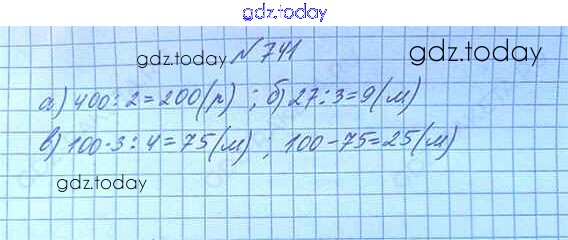 gdz.today
gdz.today № 741 gdz.today
а) 400 : 2 = 200 (р) ; б) 27 : 3 = 9 (м)
в) 100 · 3 : 4 = 75 (м) ; 100 - 75 = 25 (м)
gdz.today gdz.today